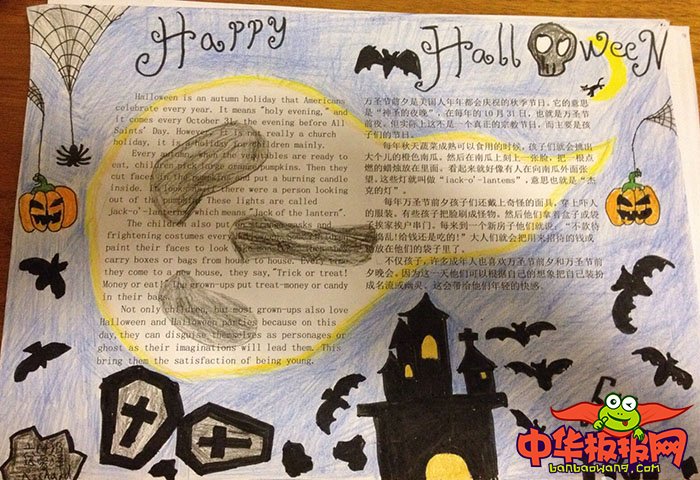 Happy Halloween
Halloween is an autumn holiday that Americans
celebrate every year. It means "holy evening," and
it comes every October 31, the evening before All
Saints' Day. However, it is not really a church
holiday, it is a holiday for children mainly.
Every autumn, when the vegetables are ready to
eat, children pick large orange pumpkins. Then they
cut faces in the pumpkins and put a burning candle
inside. It looks as if there were a person looking
out of the pumpkin. These lights are called
jack-o'-lanterns, which means "Jack of the lantern".
The children also put on masks and
frightening costumes every
paint their faces to look
carry boxes or bags from house to house. Every time
they come to a new house, they say, "Trick or treat!
Money or eat!" The grown-ups put treat-money or candy
in their bags.
Not only children, but most grown-ups also love
Halloween and Halloween parties because on this
day, they can disguise themselves as personages or
ghost as their imaginations will lead them. This
bring them the satisfaction of being young.
万圣节前夕是美国人年年都会庆祝的秋季节日。它的意思
是“神圣的夜晚”,在每年的10月31日,也就是万圣节
前夜。但实际上这不是一个真正的宗教节日,而主要是孩
子们的节日。
每年秋天蔬菜成熟可以食用的时候,孩子们就会挑出
大个儿的橙色南瓜。然后在南瓜上刻上一张脸,把一根点
燃的蜡烛放在里面。看起来就好像有人在向南瓜外面张
望。这些灯就叫做“iack-o'-lantems”,意思也就是“杰
克的灯”。
每年万圣节前夕孩子们还戴上奇怪的面具,穿上吓人
的服装,有些孩子把脸刷成怪物。然后他们拿着盒子或袋
子挨家挨户串门。每来到一个新房子他们就说:“不款待
就捣乱!给钱还是吃的!”大人们就会把用来招待的钱或
糖放在他们的袋子里了。
不仅孩子,许多成年人也喜欢万圣节前夕和万圣节前
夕晚会。因为这一天他们可以根据自己的想象把自己装扮
成名流或幽灵。这会带给他们年轻的快感。
中华板报网
banbaowang.com